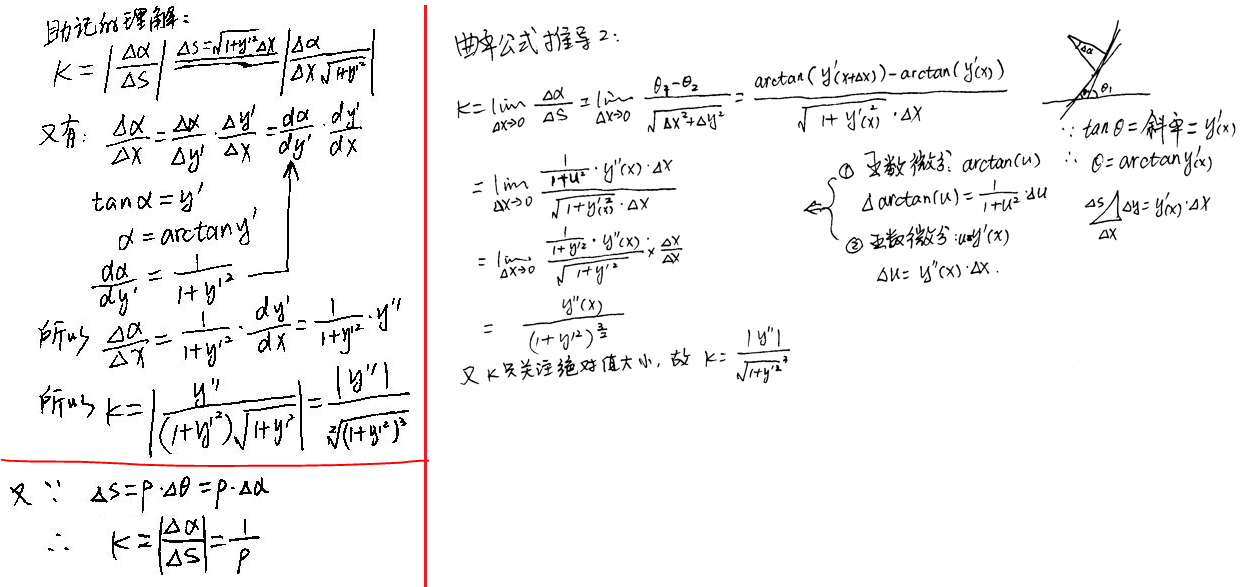 助记的理解：
K = |Δα/ΔS| \underline{\underline{ΔS=√(1+y'²)ΔX}} |Δα/(ΔX√(1+y'²))|
又有： Δα/ΔX = Δα/Δy' · Δy'/ΔX = dα/dy' · dy'/dx
tanα = y'
α = arctany'
dα/dy' = 1/(1+y'²)
所以 Δα/ΔX = 1/(1+y'²) · dy'/dx = 1/(1+y'²) · y''
所以 K = |y''/((1+y'²)√(1+y'²))| = |y''|/²√((1+y'²)³)
又 ∵ ΔS = ρ·Δθ = ρ·Δα
∴ K = |Δα/ΔS| = 1/ρ
曲率公式推导2：
K = lim_{ΔX→0} Δα/ΔS = lim_{ΔX→0} (θ₁-θ₂)/√(ΔX²+Δy²) = (arctan(y'(x+Δx)) - arctan(y'(x)))/(√(1+y'²(x))·ΔX)
= lim_{ΔX→0} (1/(1+u²) · y''(x)·ΔX)/(√(1+y'²(x))·ΔX)
= lim_{ΔX→0} (1/(1+y'²) · y''(x))/√(1+y'²) × ΔX/ΔX
= y''(x)/(1+y'²)^{3/2}
又 K只关注绝对值大小，故 K = |y''|/√(1+y'²)³
① 函数微分：arctan(u)
Δarctan(u) = 1/(1+u²)·Δu
② 函数微分：u=y'(x)
Δu = y''(x)·ΔX.
Δα
θ₁
∵ tanθ = 斜率 = y'(x)
∴ θ = arctany'(x)
ΔS Δy = y'(x)·ΔX
ΔX